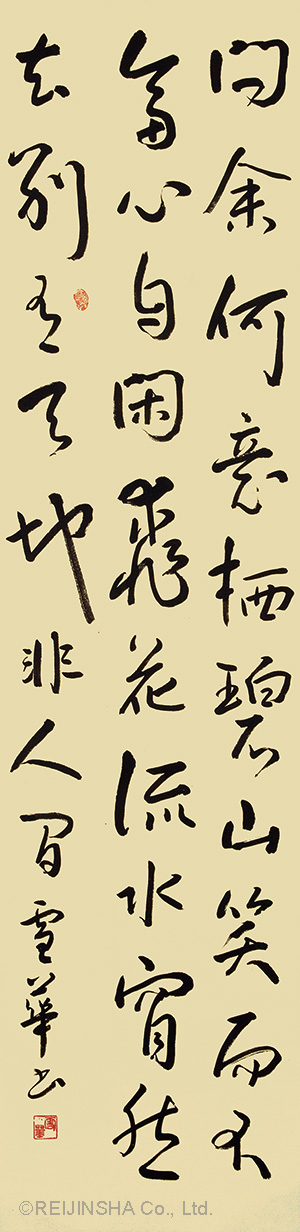 問余何意栖碧山笑而不
畣心自閑桃花流水窅然
去別有天地非人間雪華書
©REIJINSHA Co., Ltd.